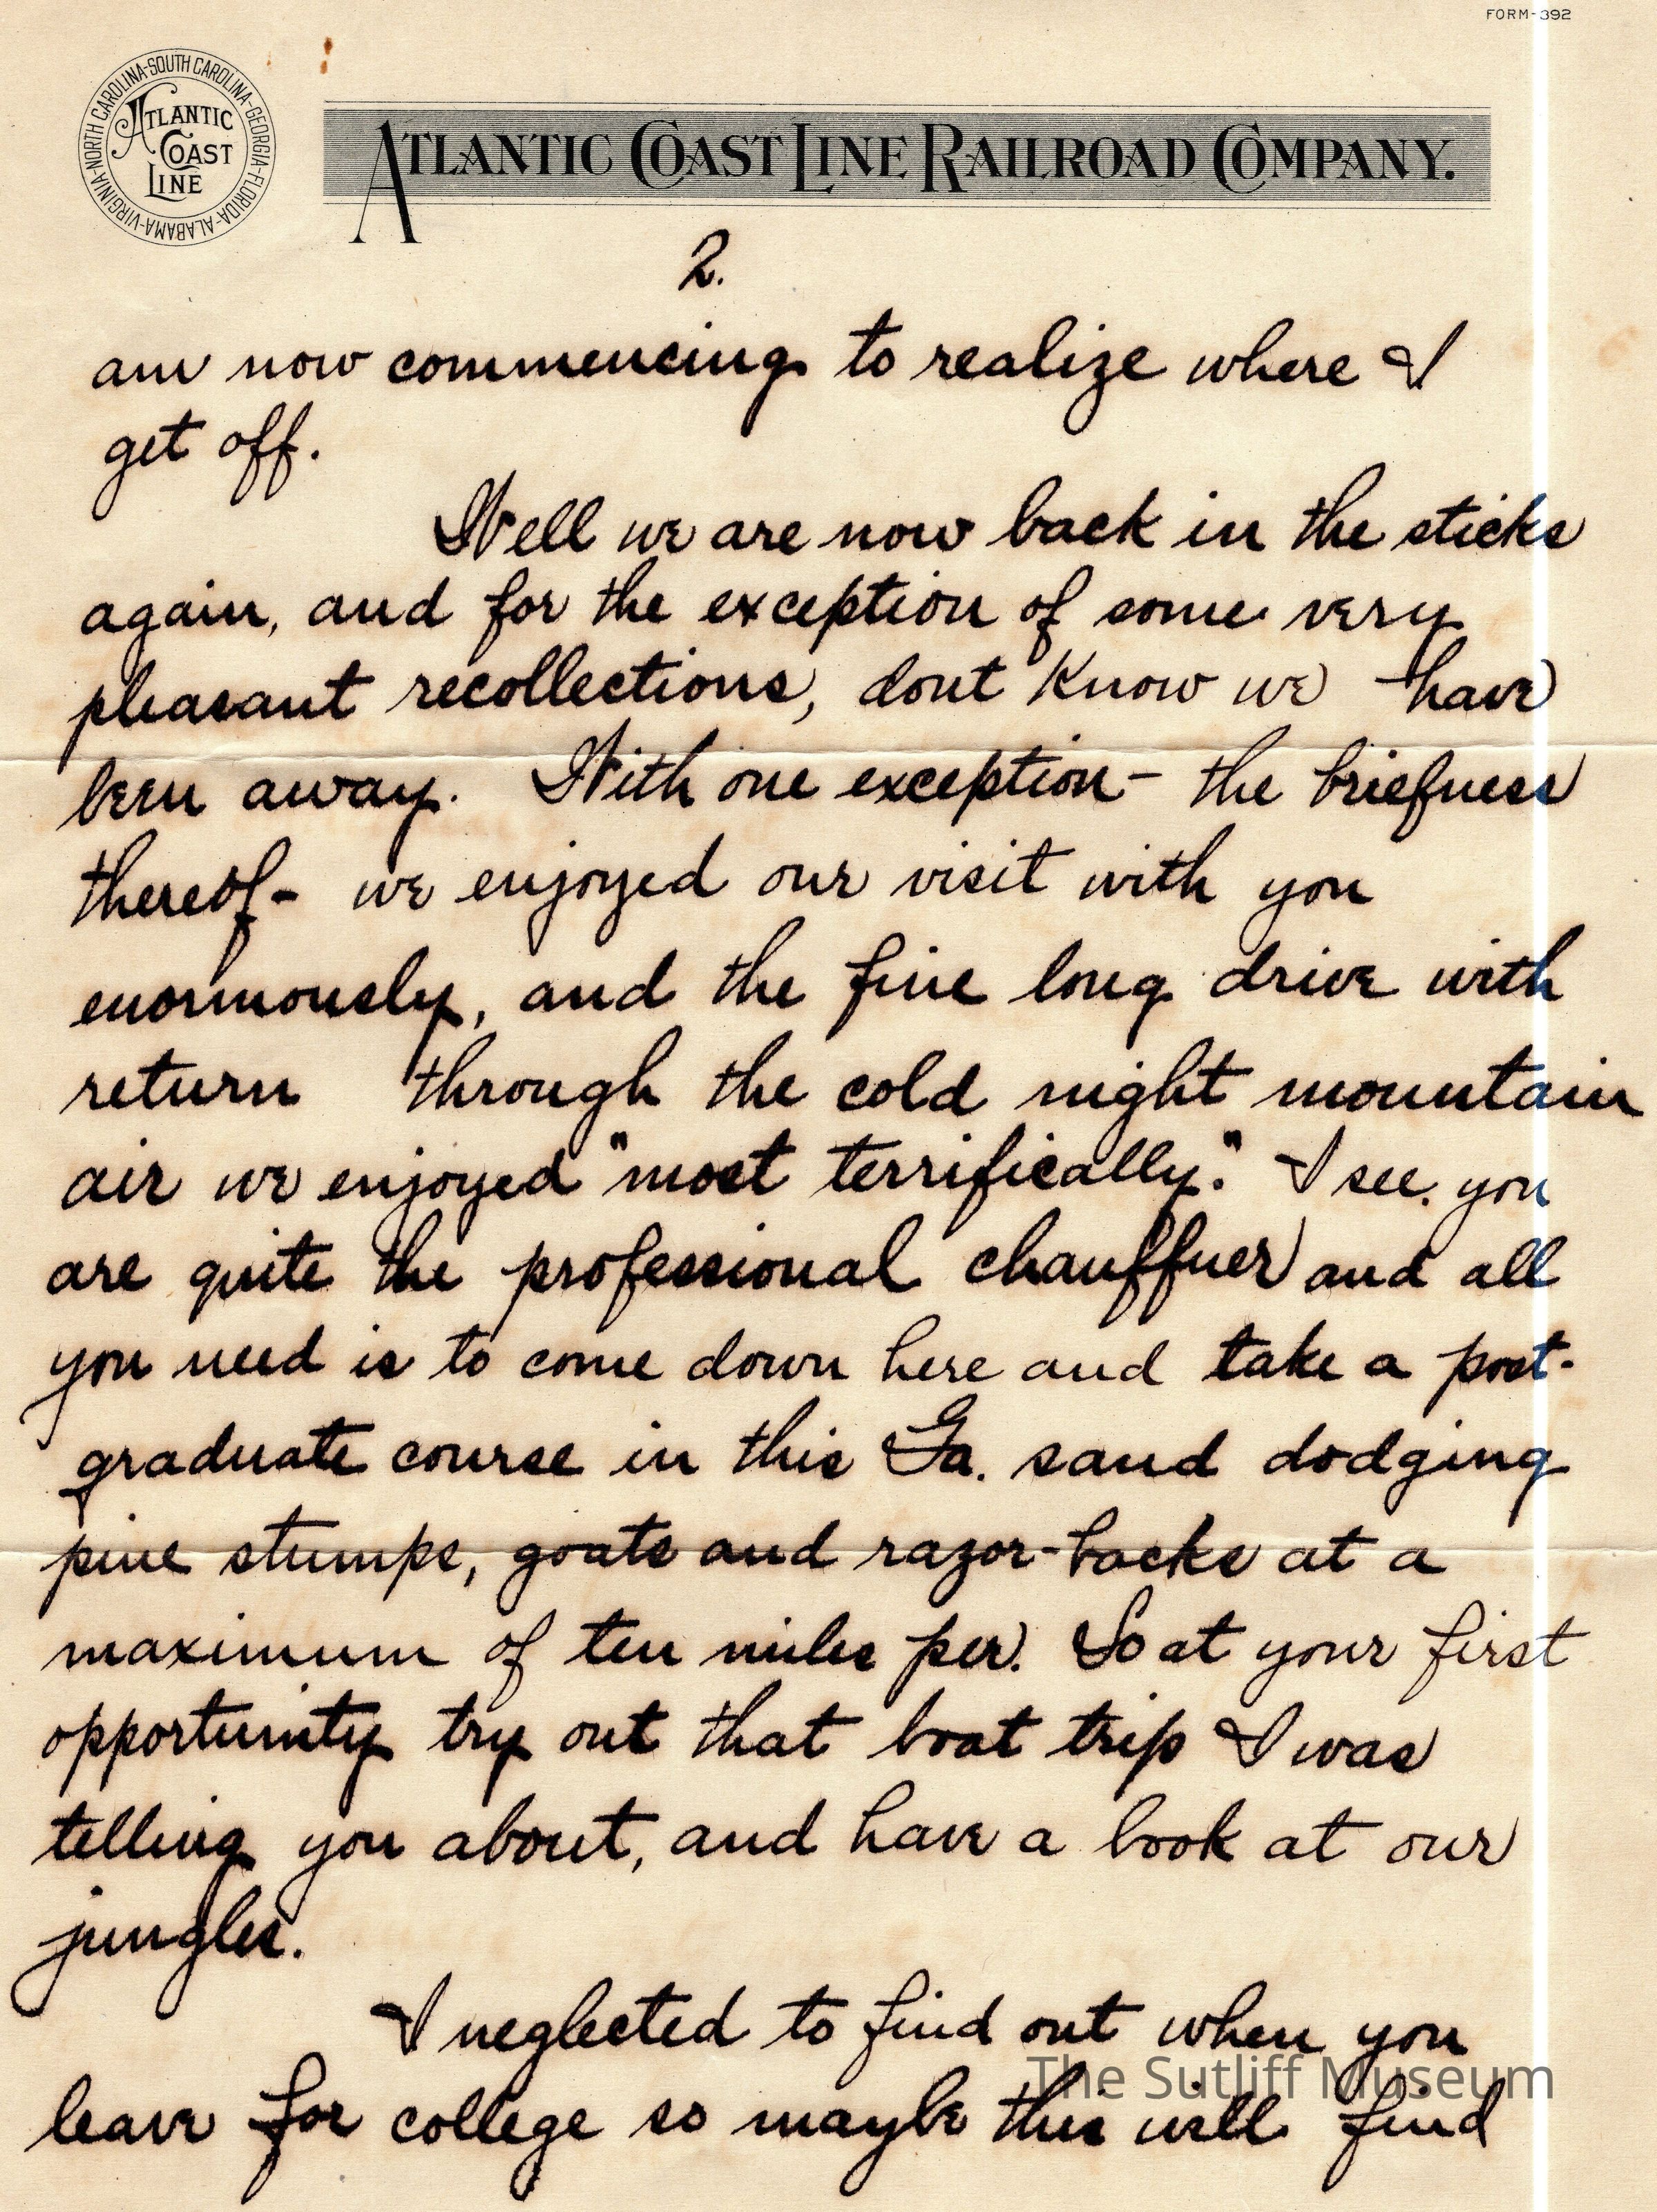 FORM-392
VIRGINIA-NORTH CAROLINA-SOUTH CAROLINA-GEORGIA-FLORIDA-ALABAMA-
ATLANTIC
COAST
LINE
ATLANTIC COAST LINE RAILROAD COMPANY.
2.
am now commencing to realize where I
get off.
Well we are now back in the sticks
again, and for the exception of some very
pleasant recollections, dont know we have
been away. With one exception - the briefness
thereof - we enjoyed our visit with you
enormously, and the fine long drive with
return through the cold night mountain
air we enjoyed "most terrifically." I see you
are quite the professional chauffuer and all
you need is to come down here and take a post-
graduate course in this Ga. sand dodging
pine stumps, goats and razor-backs at a
maximum of ten miles per. So at your first
opportunity try out that boat trip I was
telling you about, and have a look at our
jungles.
I neglected to find out when you
leave for college so maybe this will find
The Sutliff Museum